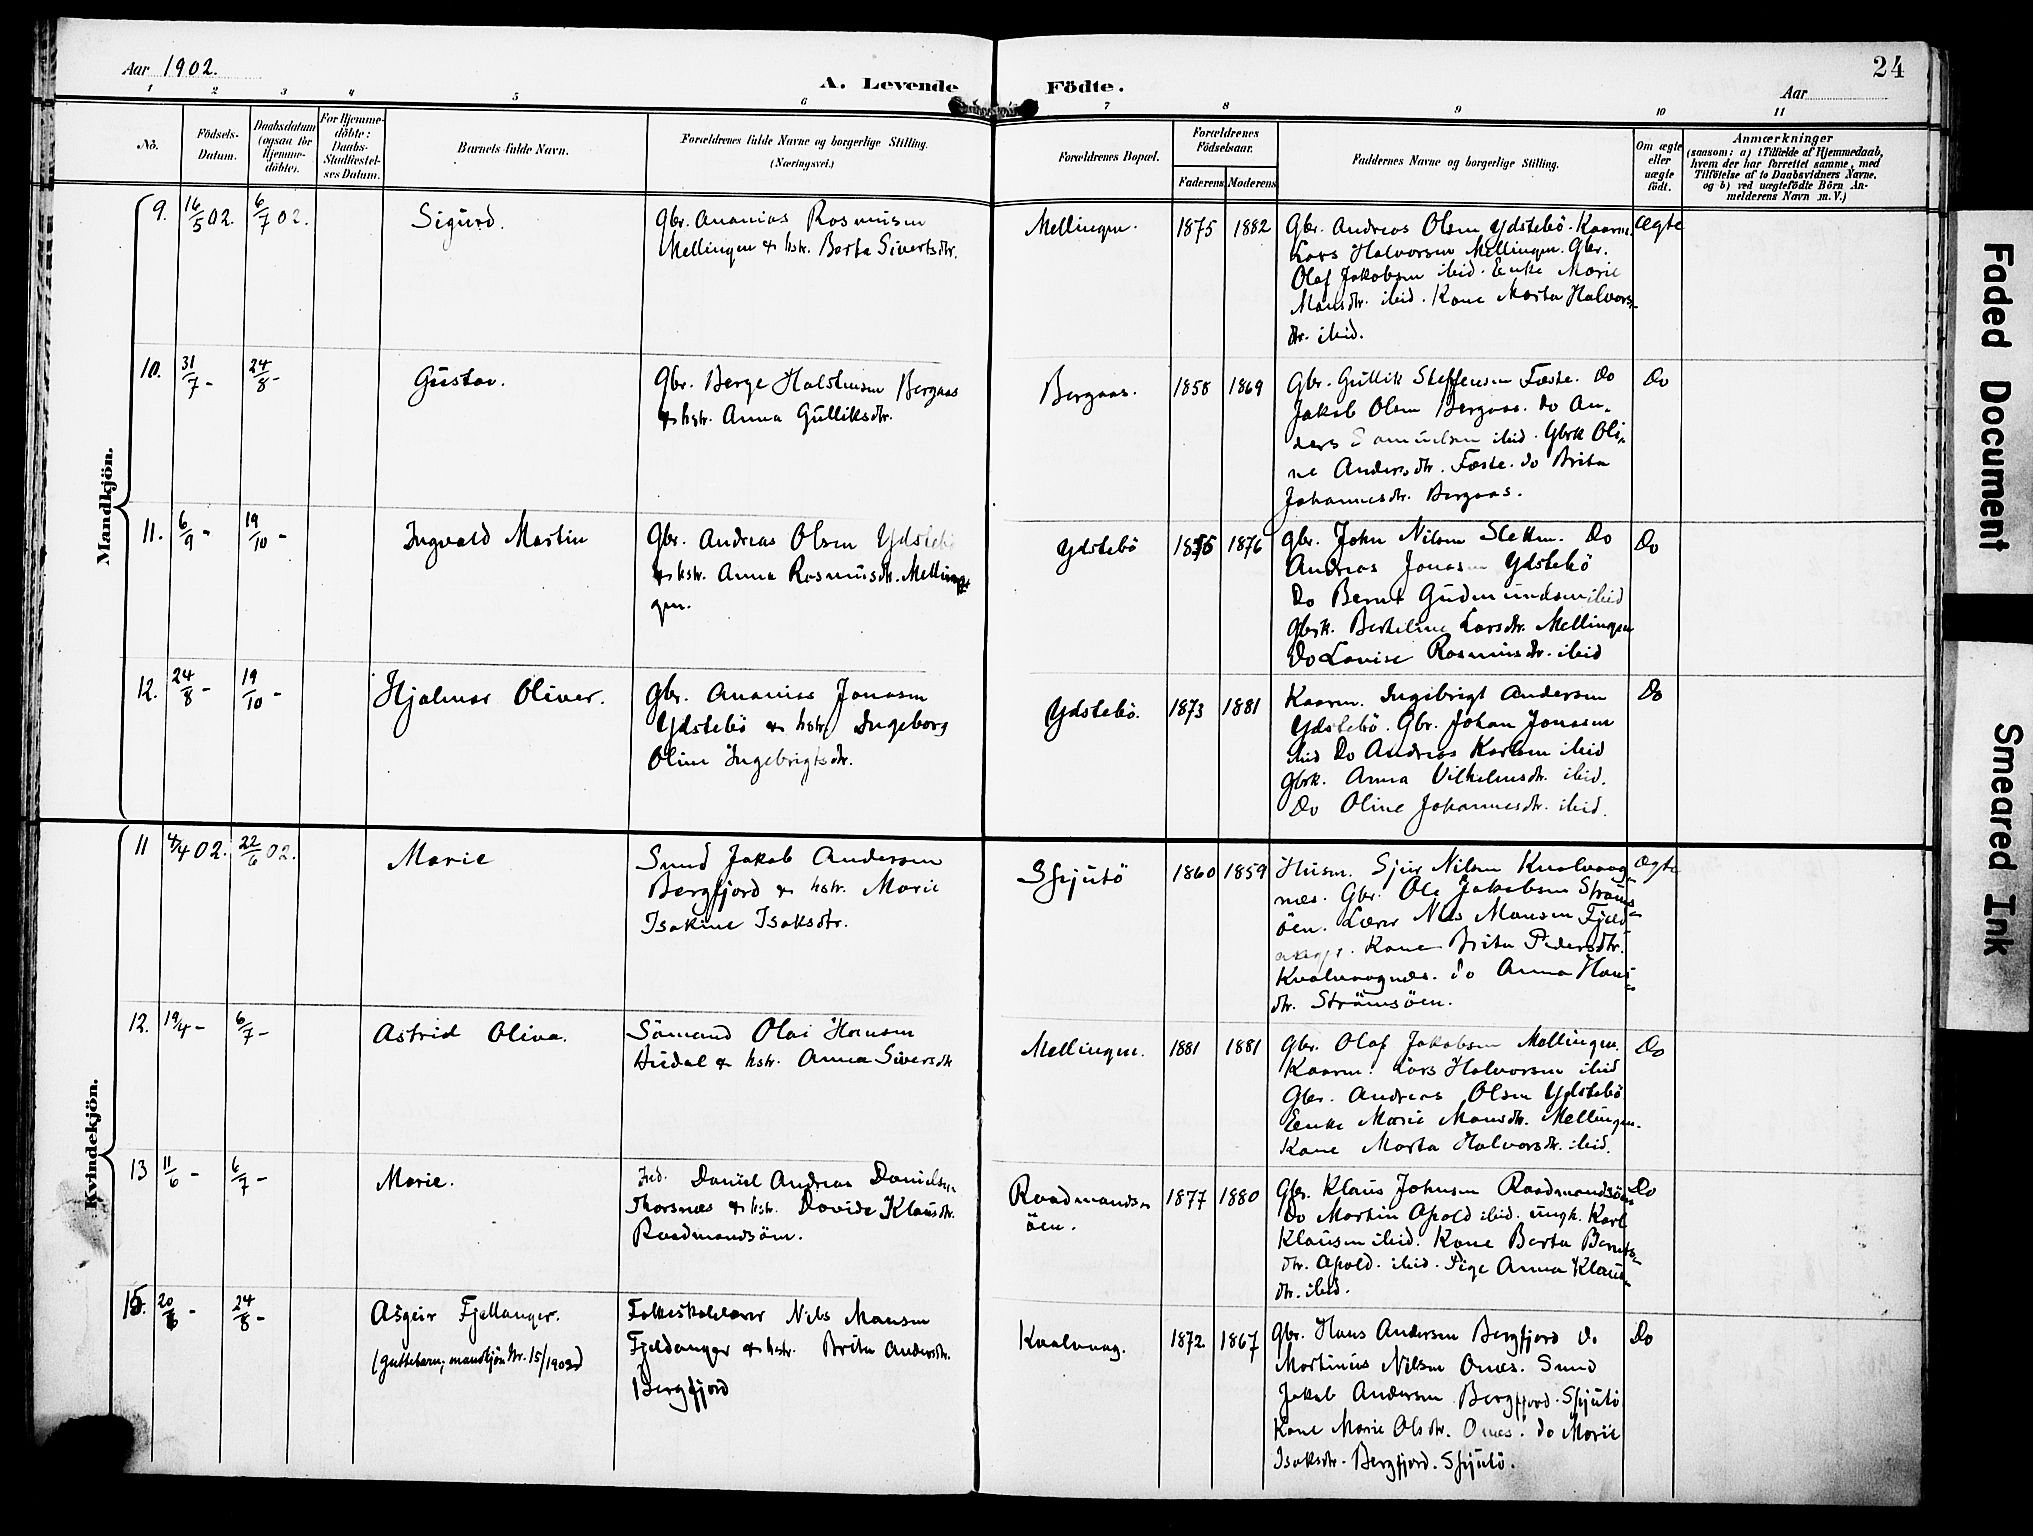 Aar 1902.
A. Levende Födte.
24
Aar
1 2 3 4 5 6 7 8 9 10 11
No.
Födsels-
Datum.
Daabsdatum
(ogsaa for
Hjemme-
döbte).
For Hjemme-
döbte:
Daabs-
Stadfæstel-
ses Datum.
Barnets fulde Navn.
Forældrenes fulde Navne og borgerlige Stilling.
(Næringsvei.)
Forældrenes Bopæl.
Forældrenes
Födselsaar.
Faderens Moderens
Faddernes Navne og borgerlige Stilling.
Om ægte
eller
uægte
födt.
Anmærkninger
(saasom: a) i Tilfælde af Hjemmedaab,
hvem der har forrettet samme, med
Tilföielse af to Daabsvidners Navne,
og b) ved uægtefödte Börn An-
melderens Navn m. V.)
Mandkjön.
9. 16/5 02. 6/7 02. Sigurd.
Gbr. Ananias Rasmusen
Mellingen & hstr. Berta Sivertsdtr.
Mellingen. 1875 1882
Gbr. Andreas Olsen Ydstebö. Kaarm.
Lars Halvorsen Mellingen. Gbr.
Olaf Jakobsen ibid. Enke Marie
Mansdtr. ibid. Kone Marta Halvors-
dtr. ibid.
Ægte
10. 31/7 - 24/8 - Gustav.
Gbr. Berge Halstensen Bergaas
& hstr. Anna Gulliksdtr.
Bergaas. 1858 1869
Gbr. Gullik Steffensen Fæste. Do
Jakob Olsen Bergaas. do An-
ders Samuelsen ibid. Gbrk Oli-
ne Andersdtr. Fæste. do Brita
Johannesdtr. Bergaas.
Do
11. 6/9 - 19/10 - Ingvald Martin
Gbr. Andreas Olsen Ydstebö
& hstr. Anna Rasmusdtr. Mellin-
gen.
Ydstebö 1875 1876
Gbr. John Nilsen Sletten. Do
Andreas Jonasen Ydstebö
Do Bernt Gudmundsen ibid
Gbrk. Bertheline Larsdtr. Mellingen
Do Lovise Rasmusdtr. ibid
Do
12. 24/8 - 19/10 - Hjalmar Oliver.
Gbr. Ananias Jonasen
Ydstebö & hstr Ingeborg
Oline Ingebrigtsdtr.
Ydstebö. 1873 1881
Kaarm. Ingebrigt Andersen
Ydstebö. Gbr. Johan Jonasen
ibid Do Andreas Karlsen ibid
Gbrk. Anna Vilhelmsdtr. ibid.
Do Oline Johannesdtr. ibid.
Do
Kvindekjön.
11 4/4 02. 22/6 02. Marie
Smed Jakob Andersen
Bergfjord & hstr. Marie
Isakine Isaksdtr.
Spjutö 1860 1859
Husm. Sjur Nilsen Kvalvaag-
næs. Gbr. Ole Jakobsen Stroms-
öen. Lærer Nils Monsen Fjeld-
anger. Kone Brita Pedersdtr.
Kvalvaagnæs. do Anna Hans-
dtr. Strömsöen.
Ægte
12. 19/4 - 6/7 - Astrid Oliva.
Sömand Olai Hansen
Audal & hstr. Anna Siversdtr
Mellingen. 1881 1881
Gbr. Olaf Jakobsen Mellingen.
Kaarm. Lars Halvorsen ibid
Gbr. Andreas Olsen Ydstebö
Enke Marie Mansdtr. Mellingen.
Kone Marta Halvorsdtr. ibid.
Do
13 11/6 - 6/7 - Marie.
Ind. Daniel Andreas Danielsen
Thorsnæs & hstr. Davida Klausdtr.
Raadmandsöen.
Raadmands-
öen. 1877 1880
Gbr. Klaus Johnsen Raadmandsöen
Do Martin Apold ibid. Ungk. Karl
Klausen ibid. Kone Berta Bernts-
dtr. Apold. ibid. Pige Anna Klaus-
dtr. ibid.
Do
15. 20/6 - 24/8 - Asgeir Fjellanger.
(guttebarn; mandkjön Nr. 15/1902)
Folkeskolelærer Nils Monsen
Fjeldanger & hstr. Brita Andersdtr.
Bergfjord
Kvalvaag. 1872 1867
Gbr. Hans Andersen Bergfjord do
Martinus Nilsen Onæs. Smed
Jakob Andersen Bergfjord. Spjutö
Kone Marie Olsdtr. Onæs. do Marie
Isaksdtr. Bergfjord. Spjutö.
Do
Faded Document
Smeared Ink